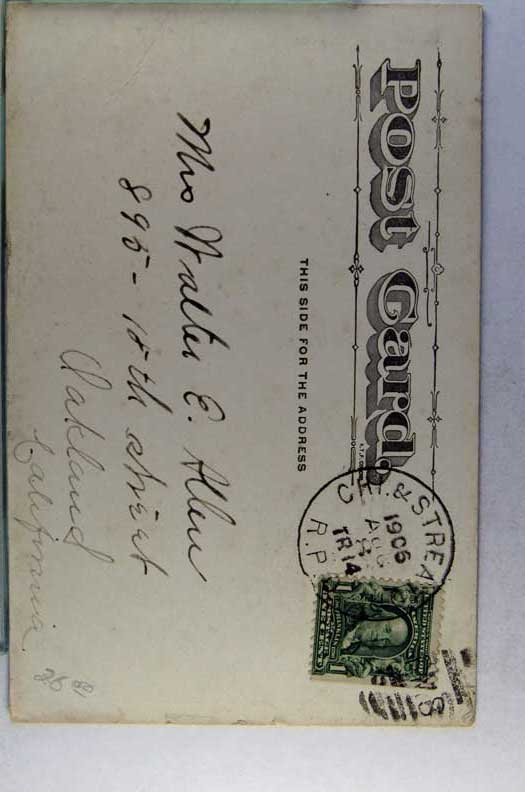 Post Card.
THIS SIDE FOR THE ADDRESS
& STREA
1906
AUG
TR 14
R.P.
RMS
Mrs Walter E. Allen
895 - 18th street
Oakland
California.